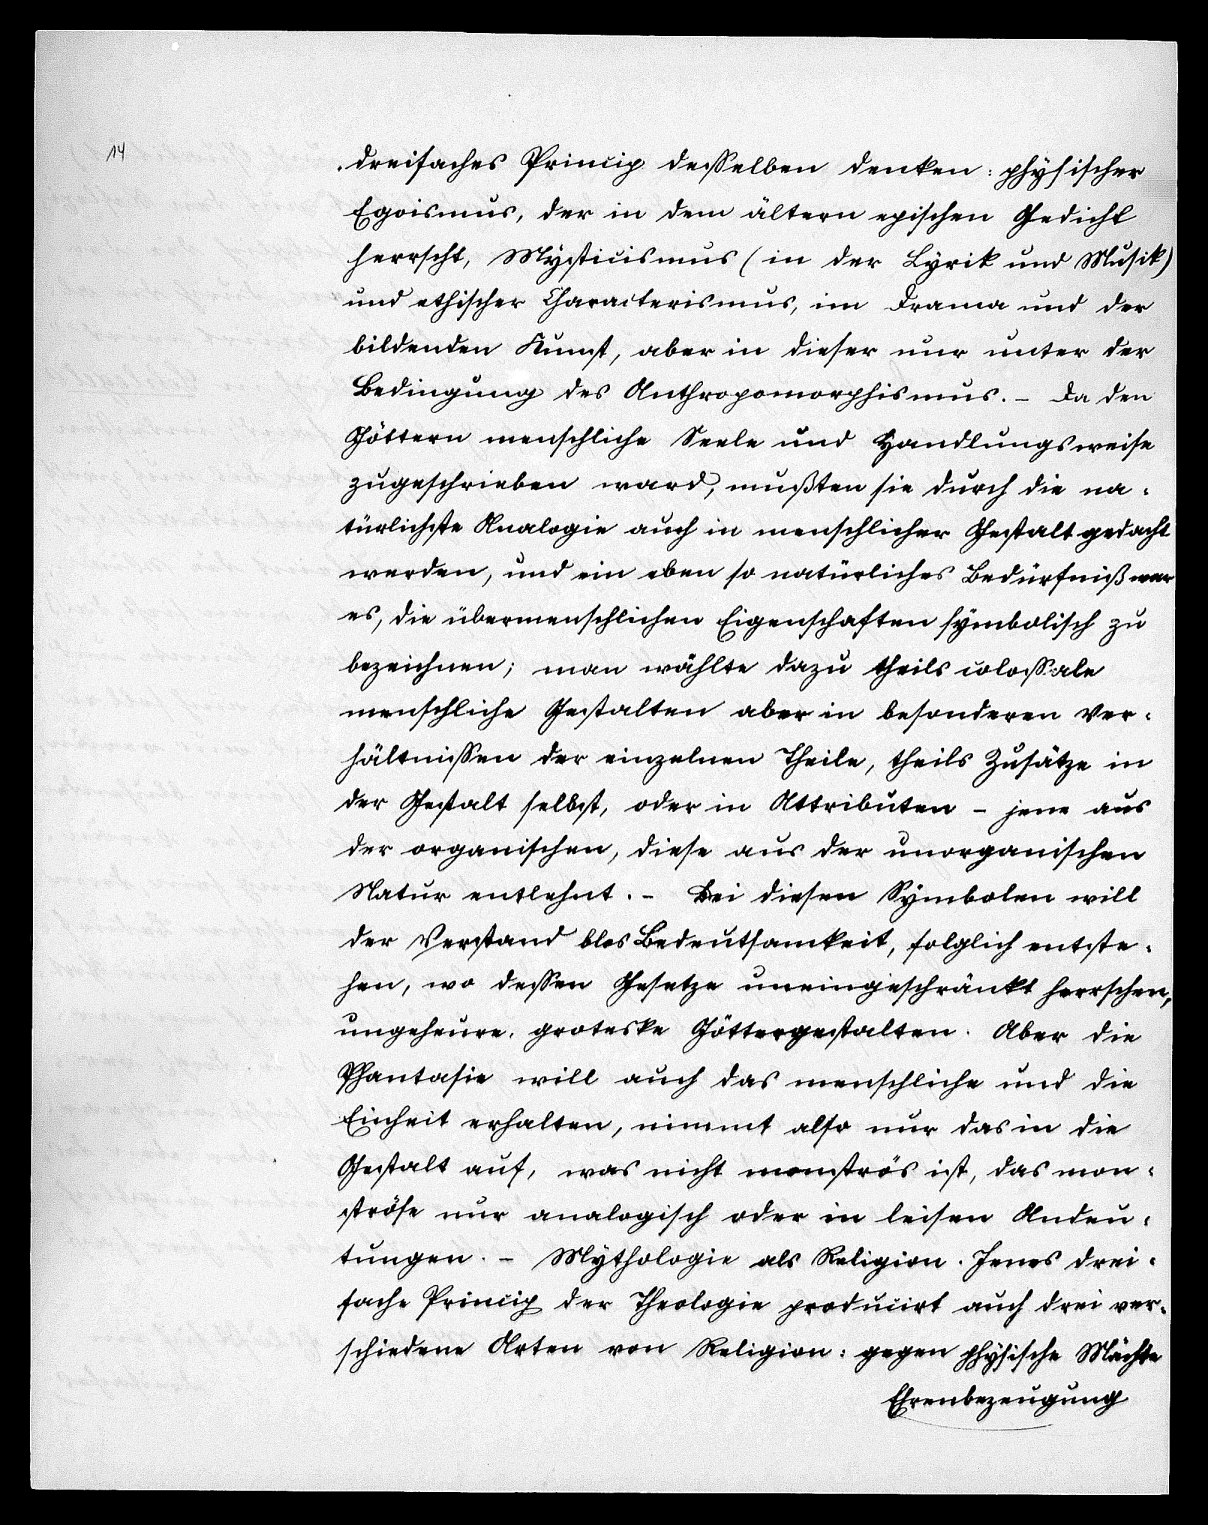 14
dreifaches Princip desselben denken: physischer
Egoismus, der in dem ältern epischen Gedicht
herrscht, Mysticismus (in der Lyrik und Musik)
und ethischer Characterismus, im Drama und der
bildenden Kunst, aber in dieser nur unter der
Bedingung des Anthropomorphismus. – Da den
Göttern menschliche Seele und Handlungsweise
zugeschrieben ward, mußten sie durch die na-
türlichste Analogie auch in menschlicher Gestalt gedacht
werden, und ein eben so natürliches Bedürfniß war
es, die übermenschlichen Eigenschaften symbolisch zu
bezeichnen; man wählte dazu theils colossale
menschliche Gestalten aber in besonderen Ver-
hältnissen der einzelnen Theile, theils Zusätze in
der Gestalt selbst, oder in Attributen – jene aus
der organischen, diese aus der unorganischen
Natur entlehnt. – Bei diesen Symbolen will
der Verstand blos Bedeutsamkeit, folglich entste-
hen, wo dessen Gesetze uneingeschränkt herrschen,
ungeheure, groteske Göttergestalten. Aber die
Phantasie will auch das menschliche und die
Einheit erhalten, nimmt also nur das in die
Gestalt auf, was nicht monströs ist, das mon-
ströse nur analogisch oder in leisen Andeu-
tungen. – Mythologie als Religion. Jenes drei-
fache Princip der Theologie producirt auch drei ver-
schiedene Arten von Religion: gegen physische Mächte
Ehrenbezeugung